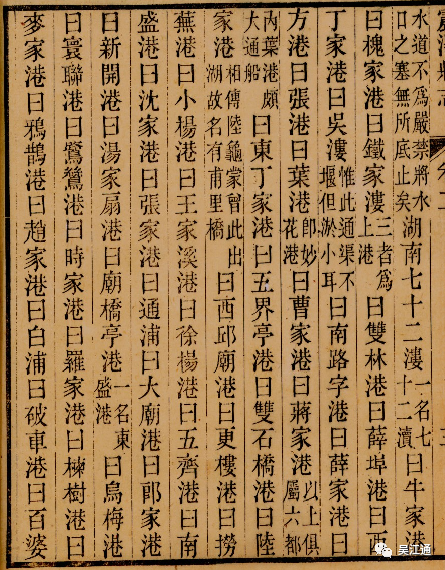 水道不為嚴禁將水口之塞無所底止矣湖南七十二漊一名七十二瀆曰牛家港
曰槐家港曰鐵家漊三者為上港曰雙林港曰薛埠港曰西
丁家港曰吳漊惟此通渠不堰但淤小耳曰南路字港曰薛家港曰
方港曰張港曰葉港即妙花港曰曹家港曰蔣家港以上俱屬六都
內葉港頗大通船曰東丁家港曰五界亭港曰雙石橋港曰陸
家港相傳陸龜蒙曾此出湖故名有甫里橋曰西邱廟港曰更樓港曰撈
蕪港曰小楊港曰王家溪港曰徐楊港曰五齊港曰南
盛港曰沈家港曰張家港曰通浦曰大廟港曰郎家港
曰新開港曰湯家扇港曰廟橋亭港一名東盛港曰烏梅港
曰寰聯港曰鷺鶿港曰時家港曰羅家港曰楝樹港曰
麥家港曰鴉鵲港曰趙家港曰白浦曰破車港曰百婆
吴江通